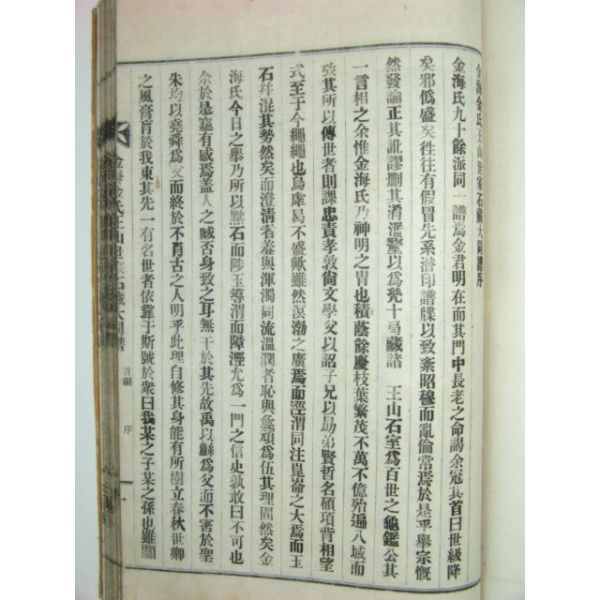 金海金氏王山世家石藏大同譜序
金海氏九十餘派同一譜焉金君明在而其門中長老之命謁余冠其首曰世級降
矣邪僞盛矣徃徃有假冒先系潛印譜牒以致紊昭穆而亂倫常焉於是乎舉宗慨
然發論正其訛謬删其淆濫鑿以爲凳十尋藏諸 王山石室爲百世之龜鑑公其
一言相之余惟金海氏乃神明之胄也積蔭餘慶枝葉繁茂不萬不億殆遍八域而
攷其所以傳世者則課忠責孝敦尙文學父以詔子兄以勗弟賢哲名碩項背相望
式至于今繩繩也烏虖曷不盛歟雖然溟渤之廣焉而涇渭同注崑崙之大焉而玉
石幷混其勢然矣而澄清者羞與渾濁同流溫潤者恥與麄頑爲伍其理固然矣金
海氏今日之舉乃所以黜石而陟玉導渭而障涇允爲一門之信史孰敢曰不可也
余於是竊有感焉盖人之臧否身致之耳無干於其先故禹以鯀爲父而不害於聖
朱均以堯舜爲父而終於不肖古之人明乎此理自修其身能有所樹立春秋世卿
之風膏肓於我東其先一有名世者依靠于斯號於衆曰我某之子某之孫也雖闒
金海金氏王山世家石藏大同譜 首編 序 一